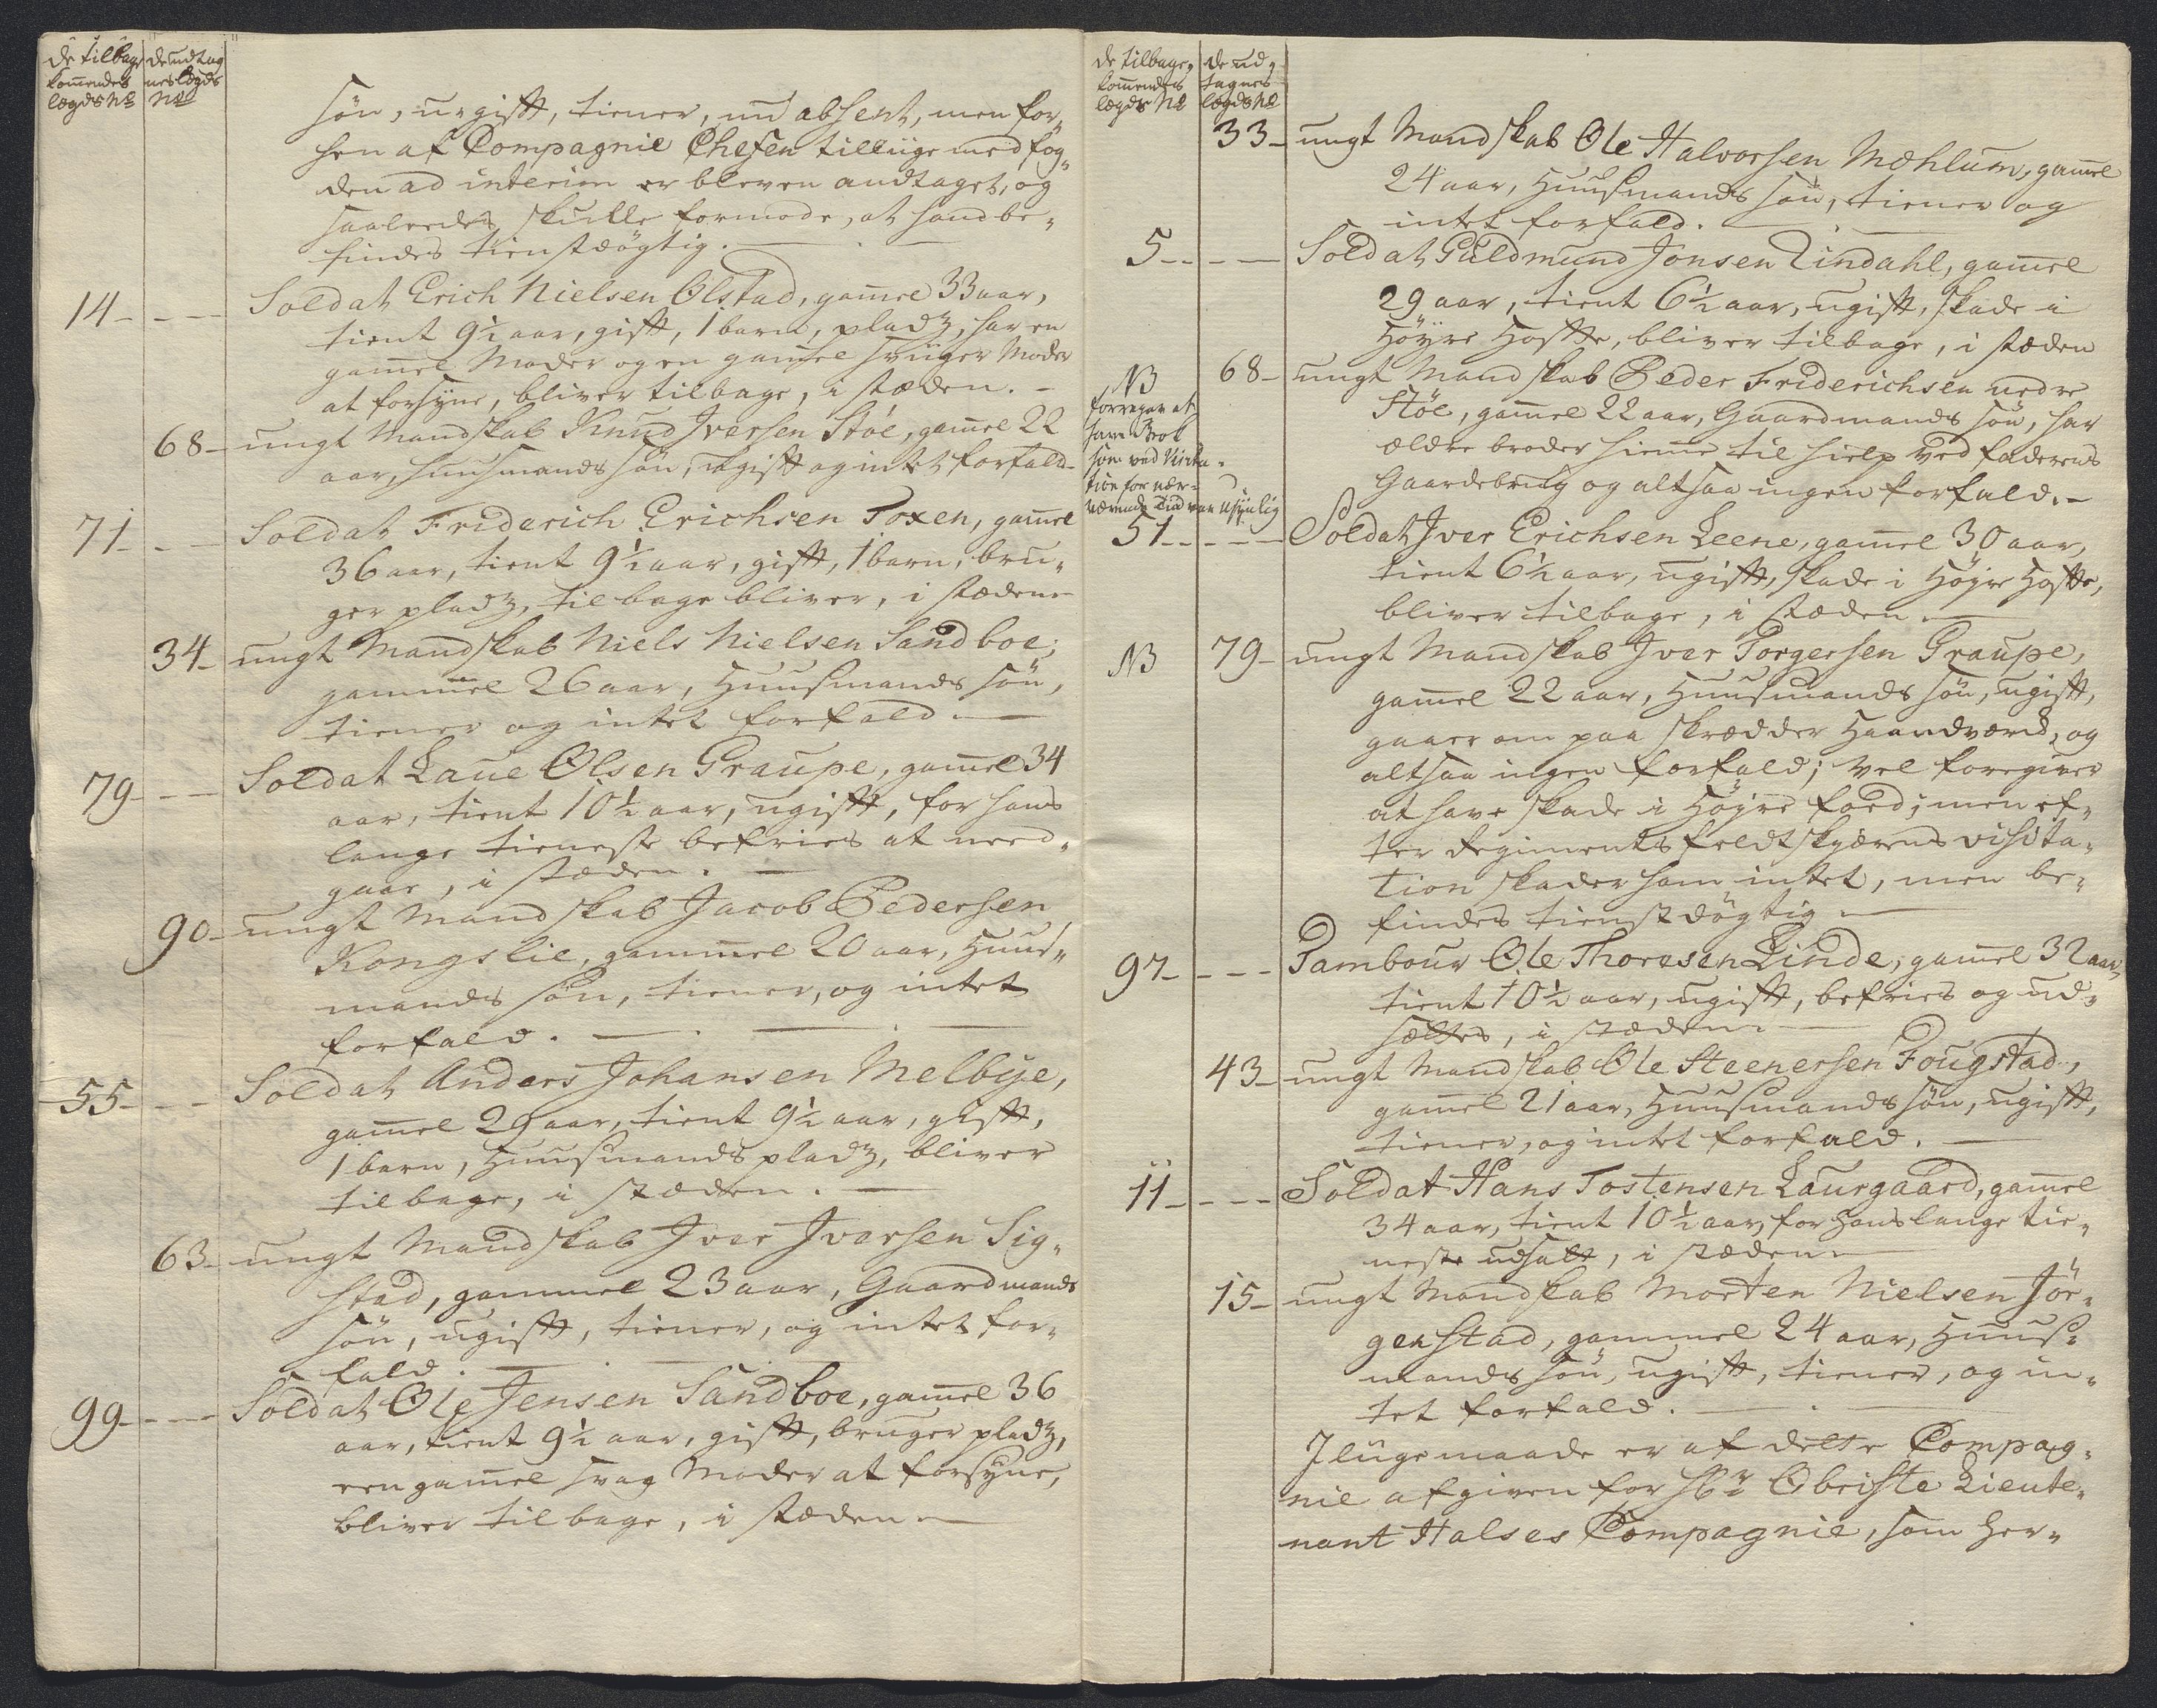 de tilbage
kom̅endes
lægds No
de udtag
nes lægds
No
søn, u-gift, tiener, nu absent, men for„
hen af Compagnie Chefen tilliige med fog„
den ad interim er bleven andtaget, og
saaleedes skulle formode, at hand be„
findes tienstdögtig.
14 Soldat Erich Nielsen Olstad, gam̅el 33 aar,
tient 9½ aar, gift, 1 barn, pladz, har en
gam̅el Moder og en gam̅el Svüger Moder
at forsyne, bliver tilbage, i stæden.
68 ungt Mandskab Knud Iversen Stöe, gam̅el 22
aar, huusmands søn, ugift og intet forfald
71 Soldat Friderich Erichsen Toxen, gam̅el
36 aar, tient 9½ aar, gift, 1 barn, bru„
ger pladz, tilbage bliver, i stædene
34 ungt Mandskab Niels Nielsen Sandboe,
gammel 26 aar, Huusmands søn,
tiener og intet forfald
79 Soldat Laue Olsen Graupe, gam̅el 34
aar, tient 10½ aar, ugift, for hans
lange tieneste befries at need„
gaae, i stæden.
90 ungt Mandskab Jacob Pedersen
Kongslie, gammel 20 aar, Huus„
mands søn, tiener, og intet
forfald.
55 Soldat Anders Johansen Melbye,
gam̅el 29 aar, tient 9½ aar, gift,
1 barn, Huusmands pladz, bliver
tilbage, i stæden.
63 ungt Mandskab Iver Iversen Sig„
stad, gammel 23 aar, Gaardmands
søn, ugift, tiener, og intet for„
fald.
99 Soldat Ole Jensen Sandboe, gam̅el 36
aar, tient 9½ aar, gift, bruger pladz,
een gam̅el svag Moder at forsyne,
bliver tilbage, i stæden
de tilbage„
kom̅endes
lægds No
de ud„
tagnes
lægds No
33 ungt Mandskab Ole Halvorsen Mæhlum, gam̅el
24 aar, Huusmands søn, tiener og
intet forfald.
5 Soldat Guldmund Jonsen Lindahl, gam̅el
29 aar, tient 6½ aar, ugift, skade i
Höyre Hofte, bliver tilbage, i stæden
NB
foregav at
have Brok
som ved Visita„
tion for nær„
værende Tid var usynlig
68 ungt Mandskab Peder Friderichsen nedre
Stöe, gam̅el 22 aar, Gaardmands søn, har
ældre broder hiem̅e til hielp ved faderens
Gaardebrug og altsaa ingen forfald.
51 Soldat Iver Erichsen Leene, gam̅el 30 aar,
tient 6½ aar, ugift, skade i Höyre Hofte,
bliver tilbage, i stæden.
NB
79 ungt Mandskab Iver Torgersen Graupe,
gam̅el 22 aar, Huusmands søn, ugift,
gaaer om paa skrædder Haandværk, og
altsaa ingen forfald; vel foregiver
at have skade i Höyre food; men ef„
ter Regiments feldtskjærens visita„
tion skader ham intet, men be„
findes tienstdögtig
97 Tambour Ole Thoresen Linde, gam̅el 32 aar,
tient 10½ aar, ugift, befries og ud„
sættes, i stæden
43 ungt Mandskab Ole Steenersen Fougstad,
gam̅el 21 aar, Huusmands søn, ugift,
tiener, og intet forfald.
11 Soldat Hans Tostensen Laurgaard, gam̅el
34 aar, tient 10½ aar, for hans lange tie„
neste udsatt, i stæden
15 ungt Mandskab Morten Nielsen Jör„
genstad, gammel 24 aar, Huus„
mands søn, ugift, tiener, og in„
tet forfald.
I lügemaade er af dette Compag„
nie afgiven for Hr Obriste Lieute„
nant Halses Compagnie, som her„